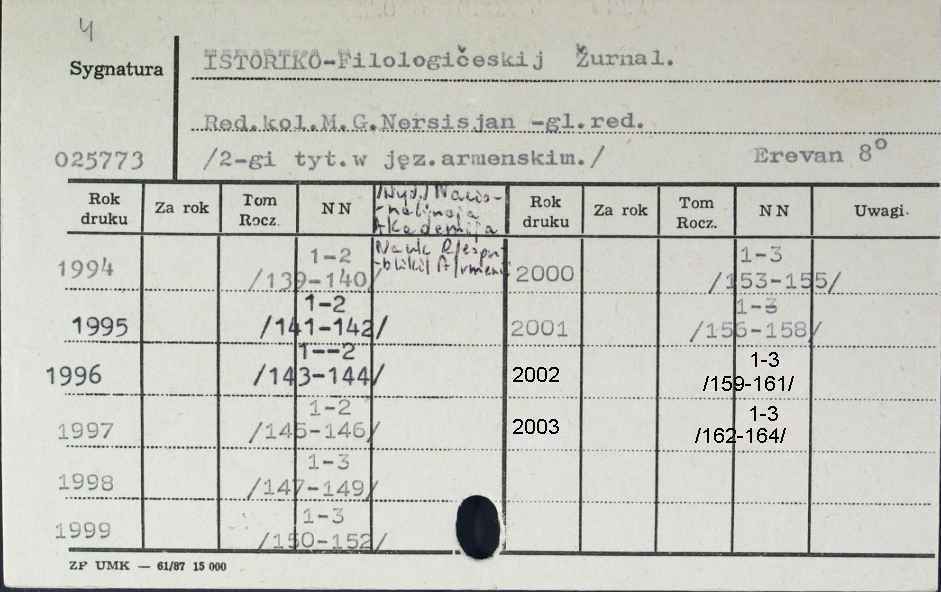 4
Sygnatura
ISTORIKO-Filologičeskij Žurnal.
Red.kol.M.G.Nersisjan -gl.red.
025773 /2-gi tyt.w jęz.armenskim./ Erevan 8°
Rok druku Za rok Tom Rocz. NN Rok druku Za rok Tom Rocz. NN Uwagi.
/Wyd./ Nacio-
-nalʹnaja
Akademija
Nauk R/espu-
-bliki/ A/rmenii
1994 1-2 /139-140/ 2000 1-3 /153-155/
1995 1-2 /141-142/ 2001 1-3 /156-158/
1996 1--2 /143-144/ 2002 1-3 /159-161/
1997 1-2 /145-146/ 2003 1-3 /162-164/
1998 1-3 /147-149/
1999 1-3 /150-152/
ZP UMK — 61/87 15 000